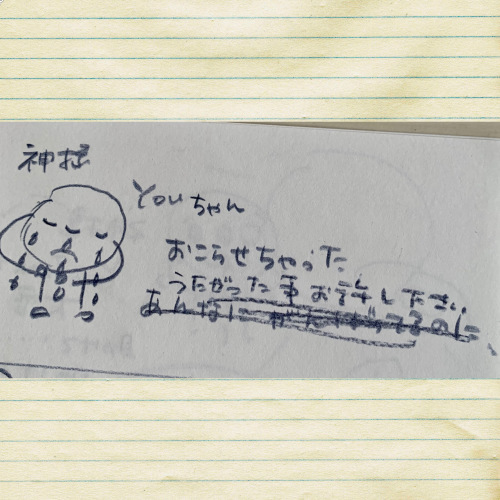 神様
Youちゃん
おこらせちゃった
うたがった事お許し下さい
あんなにがんばってるのに、